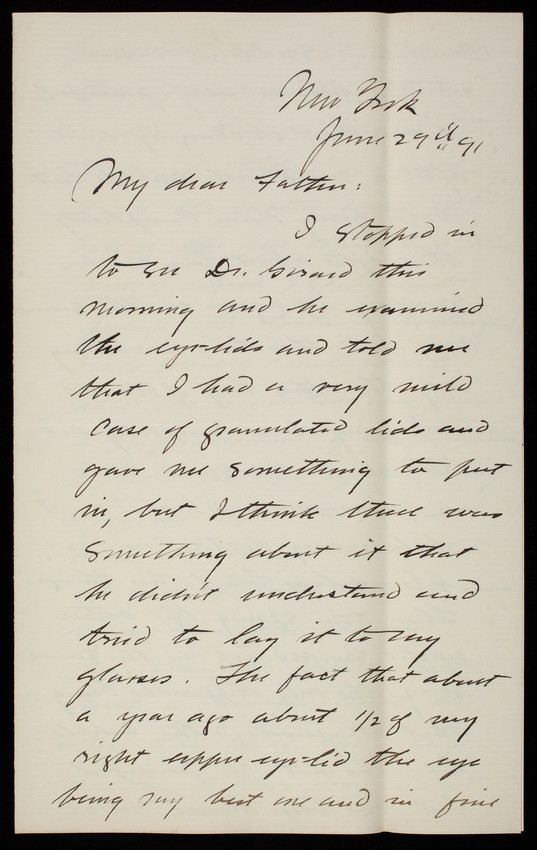 New York
June 29th 91
My dear Father:
I stopped in
to see Dr. Girard this
morning and he examined
the eye-lids and told me
that I had a very mild
case of granulated lids and
gave me something to put
in, but I think there was
something about it that
he didn't understand and
tried to lay it to my
glasses. The fact that about
a year ago about 1/2 of my
right upper eye-lid the eye
being my best one and in fine